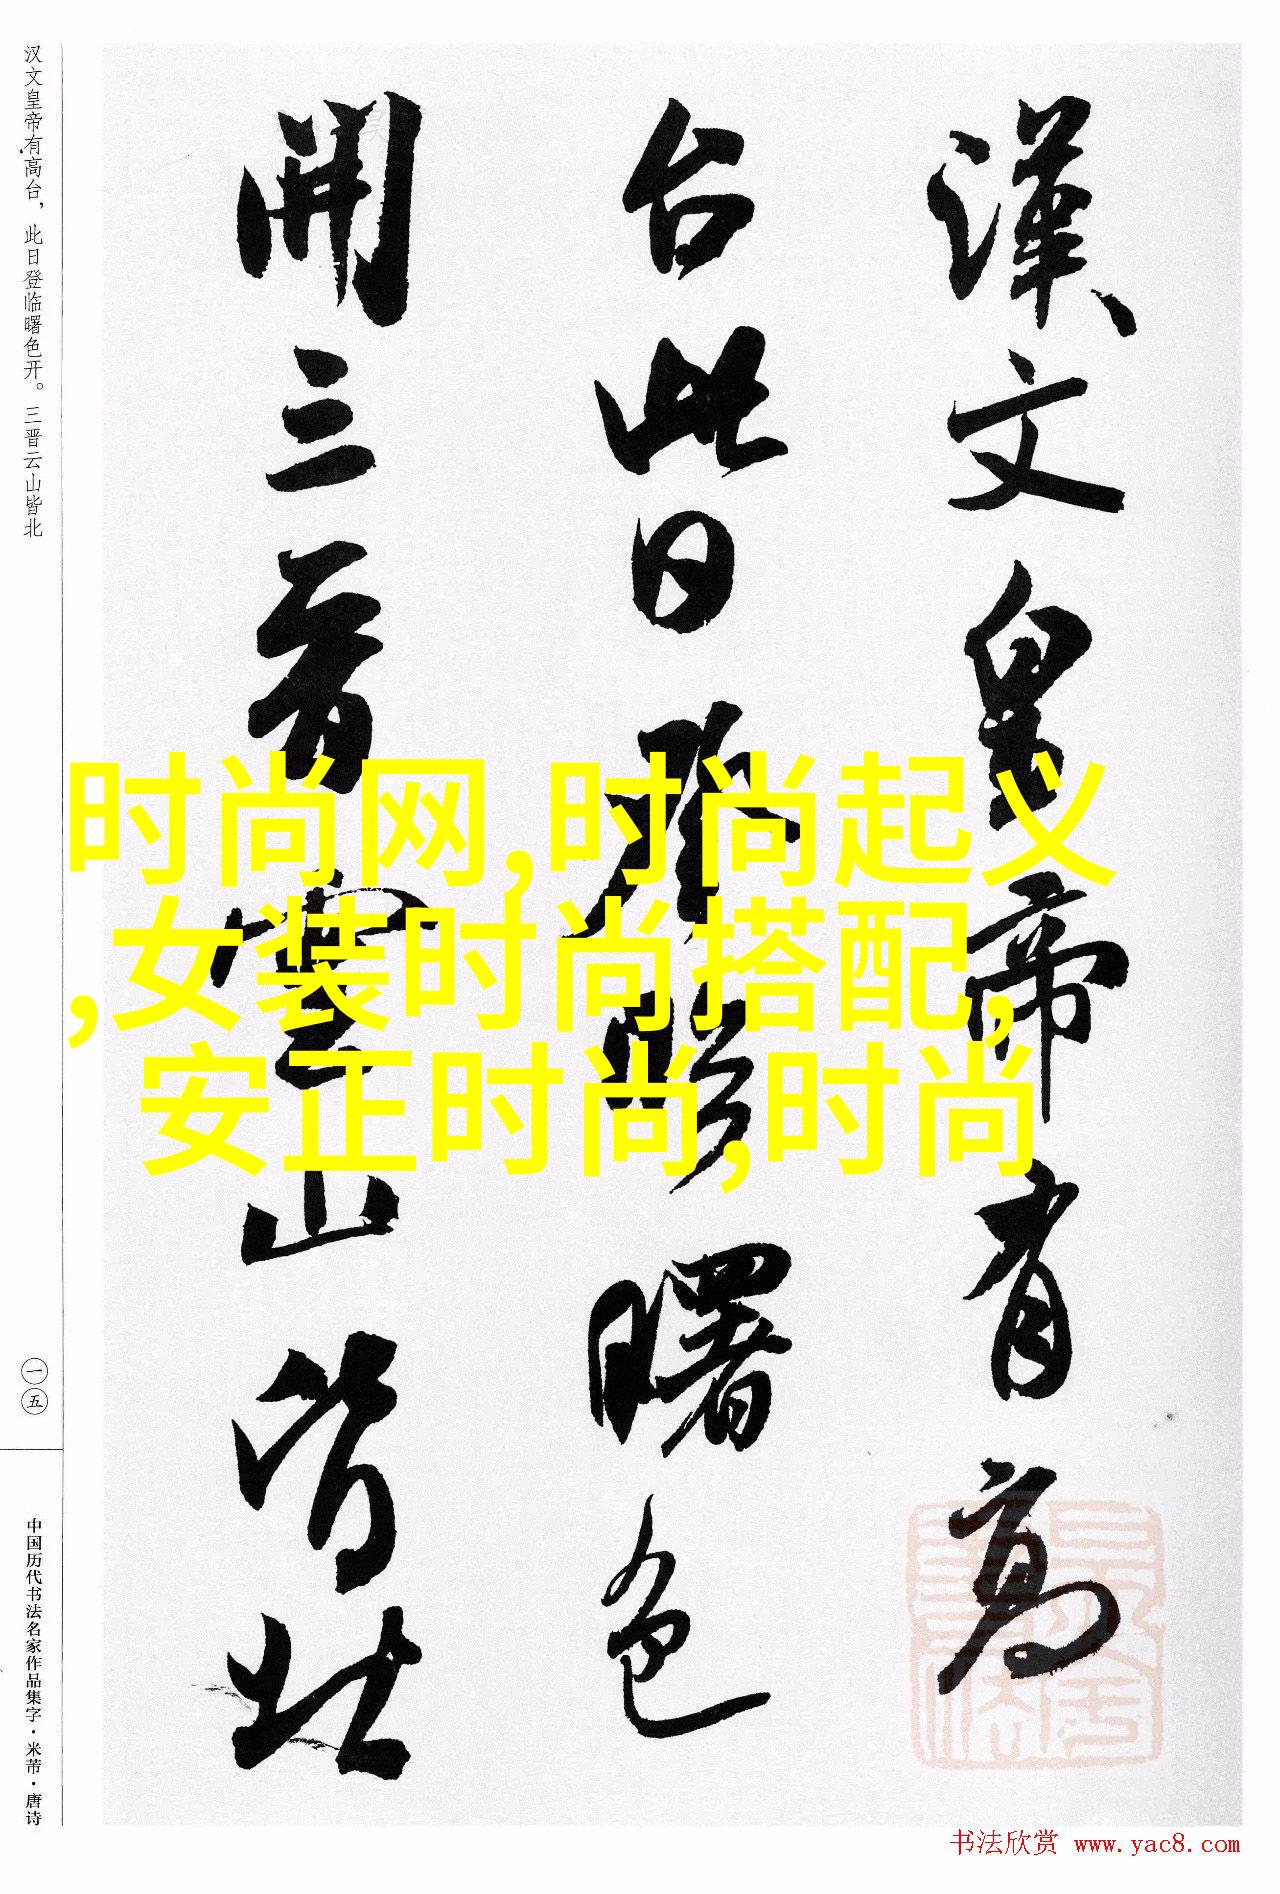 汉文皇帝有高台，此日登临曙色开。三晋云山皆北
漢文皇帝有高
台此日登臨曙色
開三晉雲山皆北
时尚网,时尚起义
,女装时尚搭配,
安正时尚,时尚
一五
中国历代书法名家作品集字·米芾·唐诗
书法欣赏 www.yac8.com